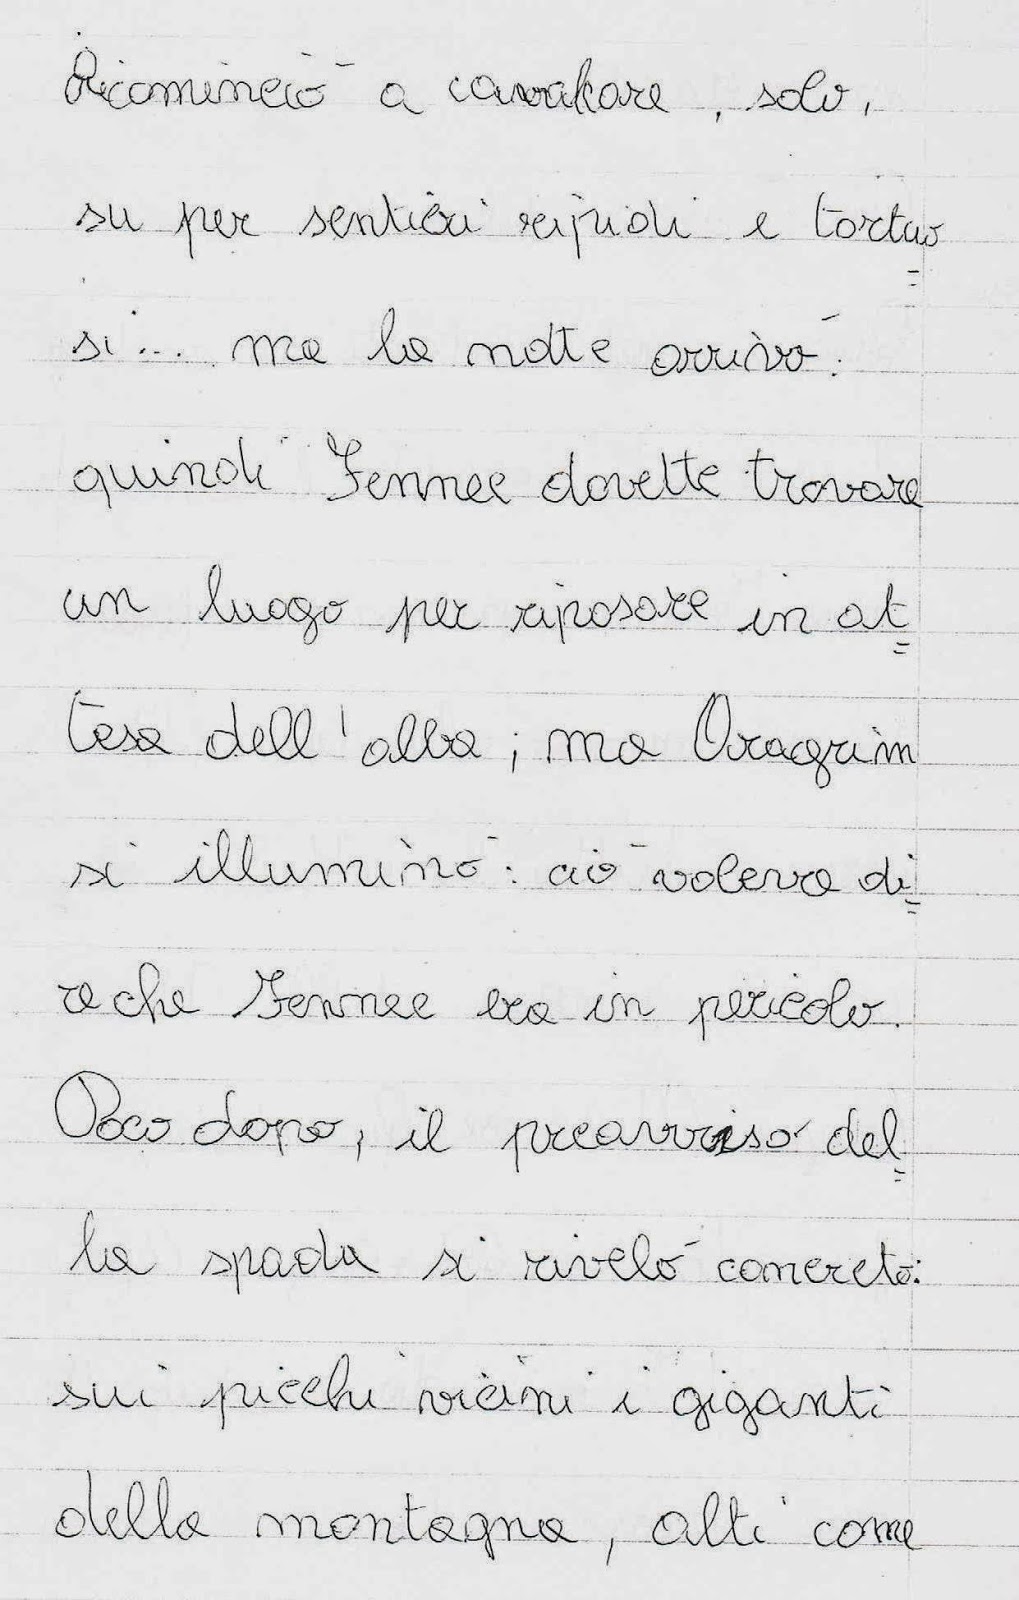 Ricominciò a cavalcare, solo,
su per sentieri ripidi e tortuo=
si... ma la notte arrivò:
quindi Fennec dovette trovare
un luogo per riposare in at=
tesa dell'alba; ma Oragrim
si illuminò: ciò voleva di=
re che Fennec era in pericolo.
Poco dopo, il preavviso del=
la spada si rivelò concreto:
sui picchi vicini i giganti
della montagna, alti come